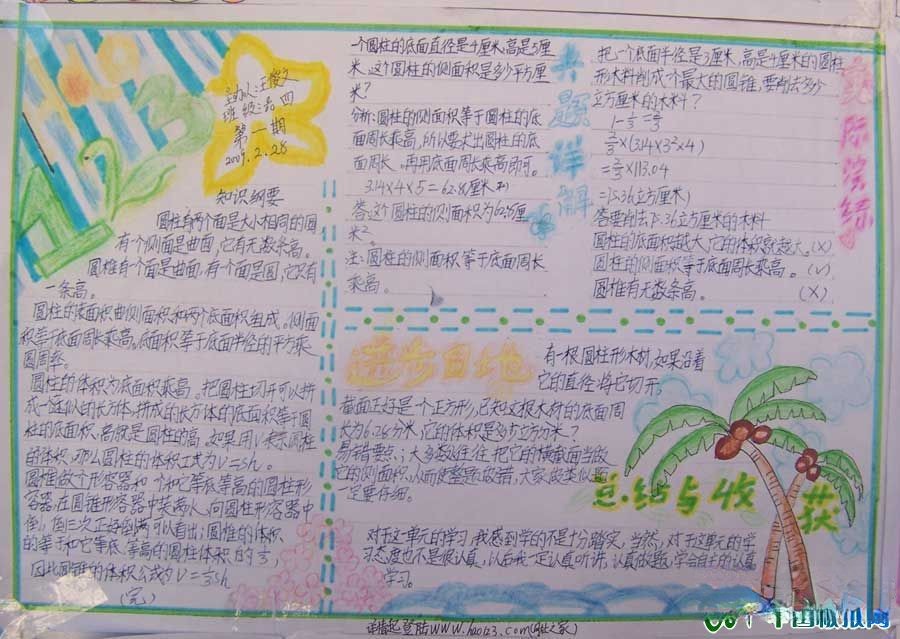 123
主办人:王俊文
班级:六四
第一期
2009.2.28
知识纲要
圆柱有两个面是大小相同的圆
有个侧面是曲面,它有无数条高。
圆柱有个面是曲面,有个面是圆,它只有
一条高。
圆柱的表面积由侧面积和两个底面积组成。侧面
积等于底面周长乘高。底面积等于底面半径的平方乘
圆周率。
圆柱的体积为底面积乘高。把圆柱切开可以拼
成一近似的长方体,拼成的长方体的底面积等于圆
柱的底面积、高就是圆柱的高。如果用V表示圆柱
的体积,那么圆柱的体积公式为V=sh。
圆锥做个形容器和个和它等底等高的圆柱形
容器,在圆锥形容器中装满水、向圆柱形容器中
倒,倒三次正好倒满可以看出:圆锥的体积
的等于和它等底、等高的圆柱体积的1/3,
因此圆锥的体积公式为V=1/3sh
(完)
一个圆柱的底面直径是4厘米,高是5厘
米,这个圆柱的侧面积是多少平方厘
米?
分析:圆柱的侧面积等于圆柱的底
面周长乘高,所以要求出圆柱的底
面周长,再用底面周长乘高即可。
3.14×4×5=62.8(厘米²)
答:这个圆柱的侧面积为62.8厘
米²。
注:圆柱的侧面积等于底面周长
乘高。
题详解
把一个底面半径是3厘米,高是4厘米的圆柱
形木料削成个最大的圆锥,要削去多少
立方厘米的木料?
1-1/3=2/3
2/3×(3.14×3²×4)
=2/3×113.04
=75.36(立方厘米)
答:要削去75.36立方厘米的木料
圆柱的底面积越大,它的体积就越大。(×)
圆柱的侧面积等于底面周长乘高。(√)
圆锥有无数条高。(×)
实际演练
进步自地
有一根圆柱形木材,如果沿着
它的直径将它切开,
截面正好是个正方形,已知这根木材的底面周
长为6.28分米,它的体积是多少立方分米?
易错要点:大多数人往往把它的横截面当做
它的侧面积,从而使整题做错,大家做类似题
一定要仔细。
总结与收获
对于这单元的学习,我感到学的不是十分踏实,当然,对于这单元的学
习态度也不是很认真,以后我一定认真听讲,认真做题,学会自主的认真
学习。
详情起登陆WWW.hao123.com(网址之家)
中国板瓜网